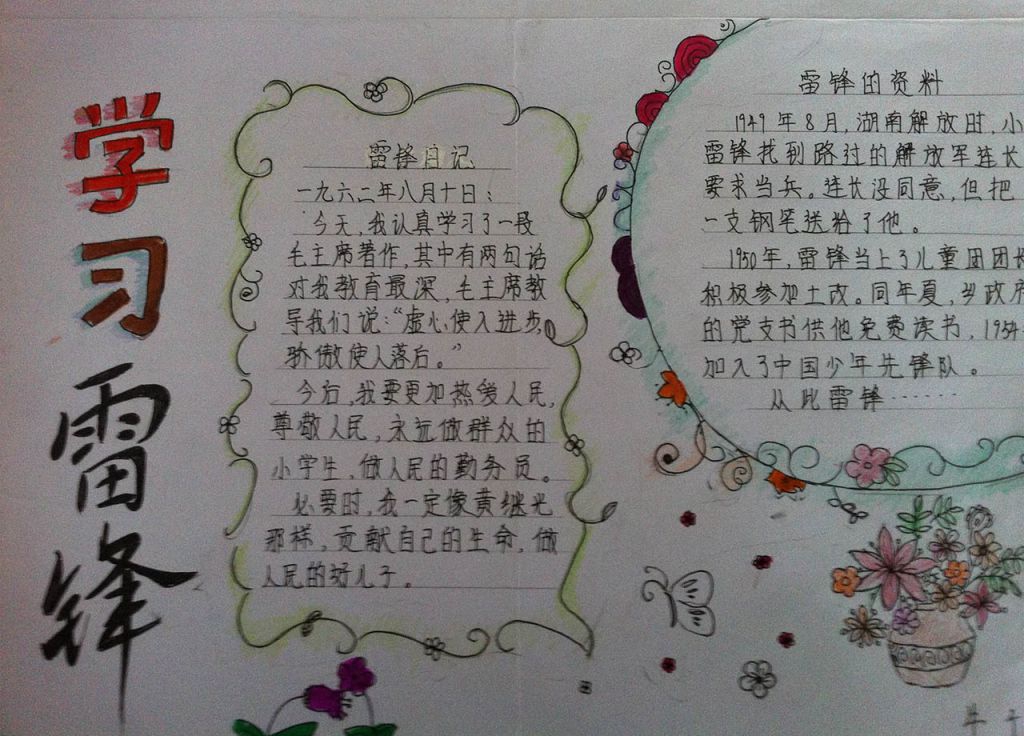 学习雷锋
雷锋日记
一九六二年八月十日:
今天,我认真学习了一段
毛主席著作,其中有两句话
对我教育最深,毛主席教
导我们说:“虚心使人进步,
骄傲使人落后。”
今后,我要更加热爱人民,
尊敬人民,永远做群众的
小学生,做人民的勤务员。
必要时,我一定像黄继光
那样,贡献自己的生命,做
人民的好儿子。
雷锋的资料
1949年8月,湖南解放时,小
雷锋找到路过的解放军连长
要求当兵。连长没同意,但把
一支钢笔送给了他。
1950年,雷锋当上了儿童团团长
积极参加土改。同年夏,乡政府
的党支书供他免费读书,1954
加入了中国少年先锋队。
从此雷锋……